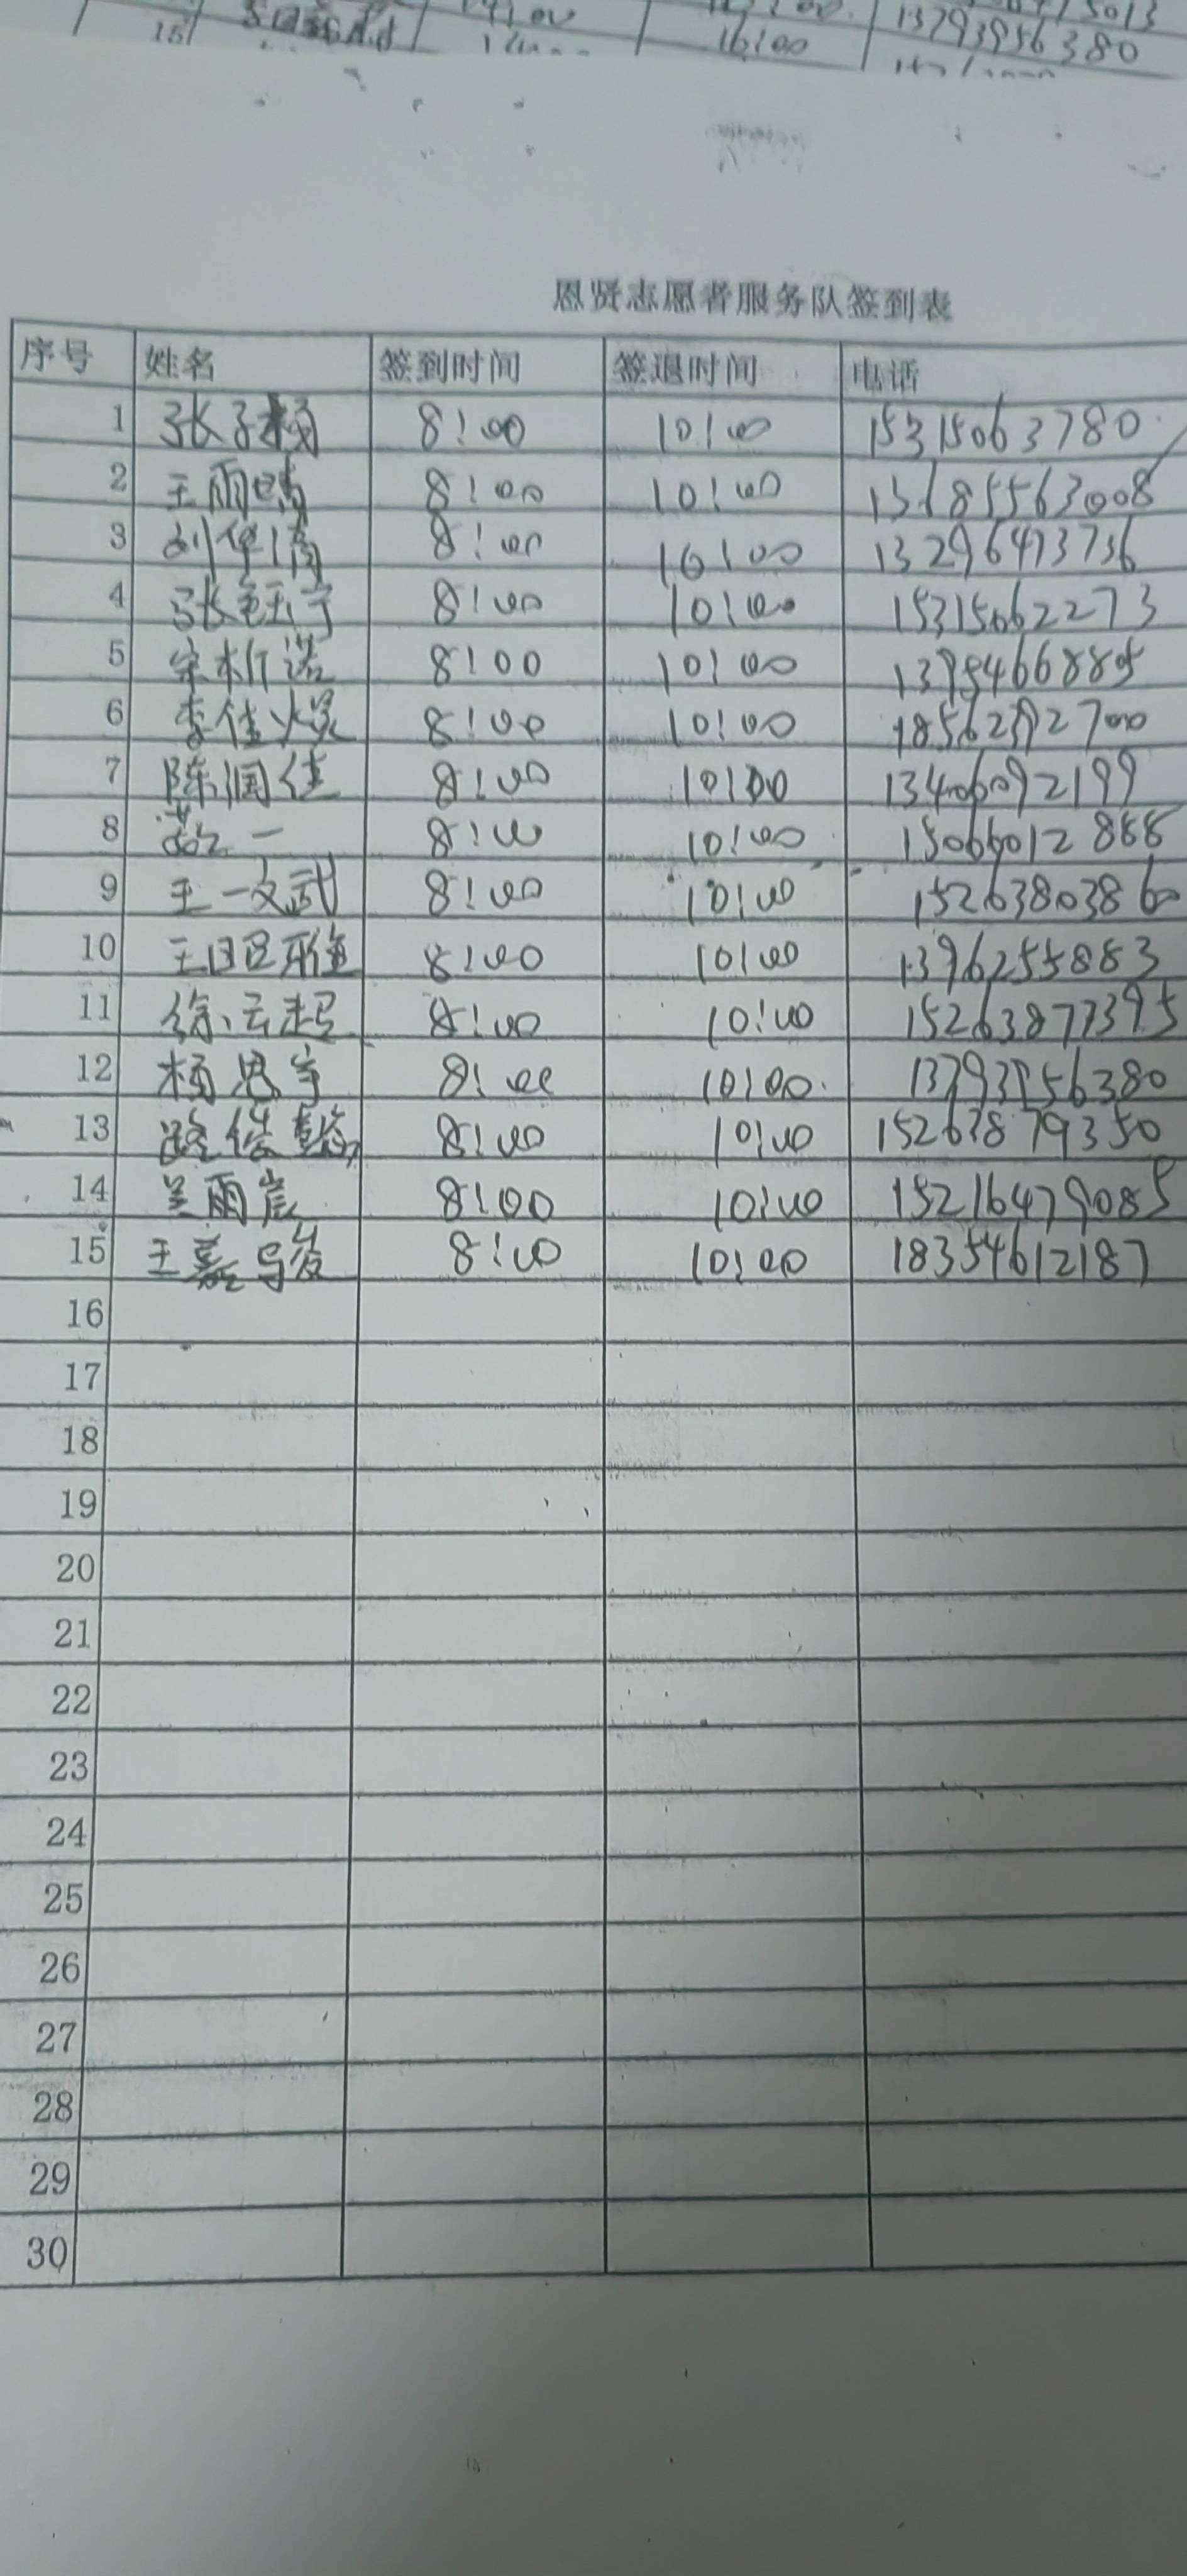 16:00 13793956380
恩贤志愿者服务队签到表
序号 姓名 签到时间 签退时间 电话
1 张子杨 8:00 10:00 15315063780
2 王雨晴 8:00 10:00 13685563008
3 8:00 10:00 13296473736
4 张钰宁 8:00 10:00 15315062273
5 宋析诺 8:00 10:00 13954668805
6 李佳焜 8:00 10:00 18562892700
7 陈润佳 8:00 10:00 13406092199
8 一 8:00 10:00 15066012888
9 王一斌 8:00 10:00 15263803860
10 8:00 10:00 1396255883
11 徐云起 8:00 10:00 15263877395
12 杨思宇 8:00 10:00 13793956380
13 路俊懿 8:00 10:00 15263879350
14 吴雨宸 8:00 10:00 152164790085
15 王 8:00 10:00 18354612187
16
17
18
19
20
21
22
23
24
25
26
27
28
29
30